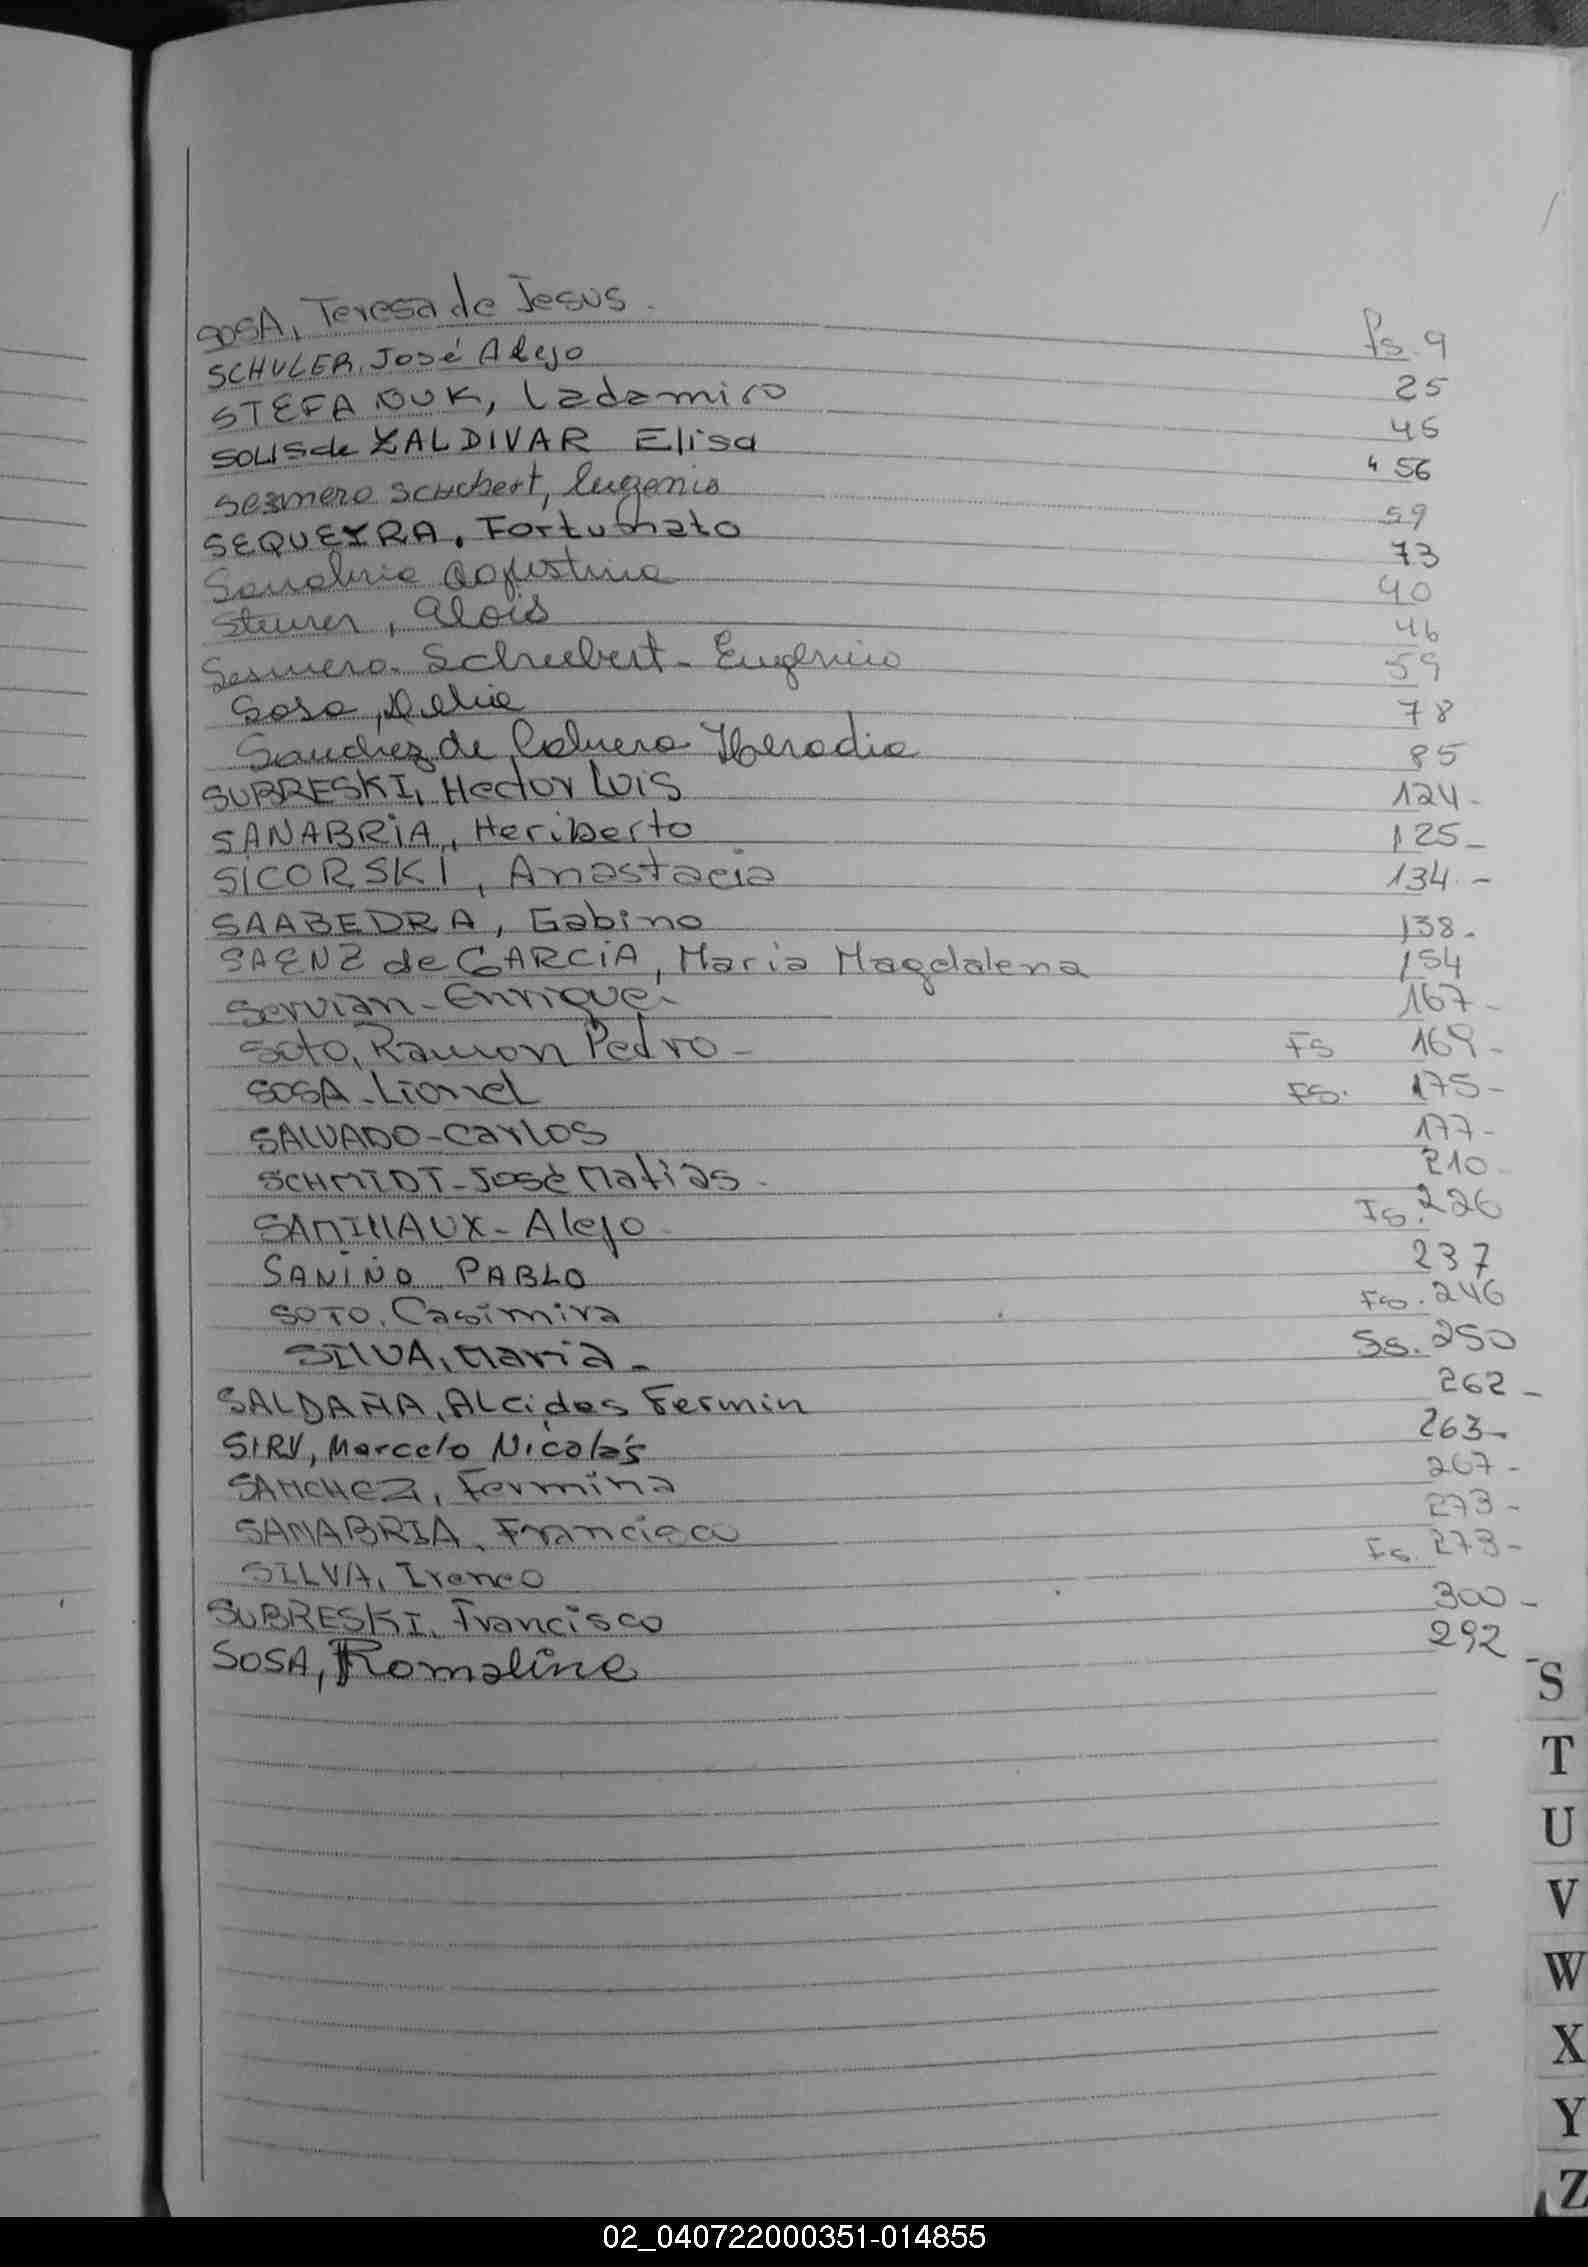 SOSA, Teresa de Jesus. fs. 9
SCHULER, José Alejo 25
STEFANUK, Ladamiro 45
SOLIS de ZALDIVAR Elisa " 56
Sesmero Schubert, Eugenio 59
SEQUEYRA, Fortunato 73
Sanabria Agustina 40
Sturer, Alois 46
Sesmero. Schubert - Eugenio 59
Sosa, Delia 78
Sanchez de Cabrera Heradia 85
SUBRESKI, Hector Luis 124-
SANABRIA, Heriberto 125-
SICORSKI, Anastacia 134.-
SAABEDRA, Gabino 138.
SAENZ de GARCIA, Maria Magdalena 154
Servian - Enrique. 167-
Soto, Ramon Pedro - Fs 169-
SOSA - Lionel Fs. 175-
SALVADO - Carlos 177-
SCHMIDT - José Matias. 210
SAMILLAUX - Alejo Fs. 226
SANIÑO PABLO 237
SOTO, Casimira Fs. 246
SILVA, Maria. Ss. 250
SALDAÑA, Alcides Fermin 262-
SIRV, Marcelo Nicolás 263-
SANCHEZ, Fermina 267-
SANABRIA, Francisco 273-
SILVA, Ireneo Fs. 273-
SUBRESKI, Francisco 300-
SOSA, Romaline 292-
S
T
U
V
W
X
Y
Z
02_040722000351-014855